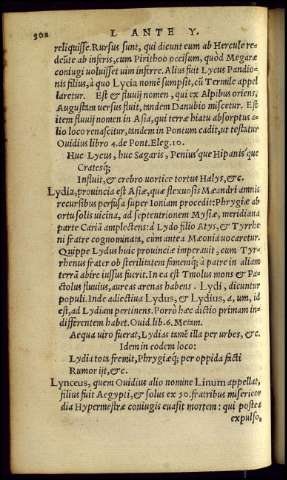 302 L ANTE Y.
reliquisse. Rursus sunt, qui dicunt eum ab Hercule re-
deũte ab inferis, cum Pirithoo occisum, quòd Megaræ
coniugi uoluisset uim inferre. Alius fuit Lycus Pandio-
nis filius, à quo Lycia nomẽ sumpsit, cũ Termile appel
laretur. Est & fluuij nomen, qui ex Alpibus oriens,
Augustam versus fluit, tandem Danubio miscetur. Est
item fluuij nomen in Asia, qui terræ hiatu absorptus a-
lio loco renascitur, tandem in Pontum cadit, ut testatur
Ouidius libro 4. de Pont. Eleg. 10.
Huc Lycus, huc Sagaris, Peniusq́ue Hipanisq́ue
Cratesq́;
Influit, & crebro uortice tortus Halys, &c.
Lydia, prouincia est Asiæ, quæ flexuosis Mæandri amnis
recursibus perfusa super Ioniam procedit: Phrygiæ ab
ortu solis uicina, ad septentrionem Mysiæ, meridiana
parte Cariã amplectens: à Lydo filio Atys, & Tyrrhe
ni fratre cognominata, cum antea Mæonia uocaretur.
Quippe Lydus huic prouinciæ imperauit, cum Tyr-
rhenus frater ob sterilitatem finemq́; à patre in aliam
terrã abire iussus fuerit. In ea est Tmolus mons & Pa-
ctolus fluuius, aureas arenas habens. Lydi, dicuntur
populi. Inde adiectiua Lydus, & Lydius, a, um, id
est, ad Lydiam pertinens. Porrò hæc dictio primam in-
differentem habet. Ouid. lib. 6. Metam.
Aequa uiro fuerat, Lydias tamẽ illa per urbes, &c.
Idem in eodem loco:
Lydia tota fremit, Phrygiæq́; per oppida facti
Rumor it, &c.
Lynceus, quem Ouidius alio nomine Linum appellat,
filius fuit Aegypti, & solus ex 50. fratribus misericor
dia Hypermestræ coniugis euasit mortem: qui postea
expulso,